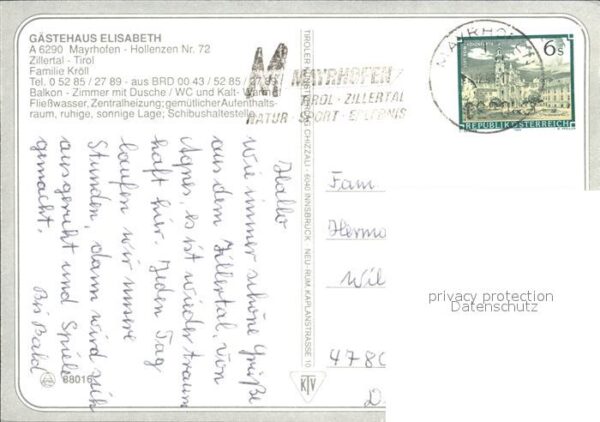 GÄSTEHAUS ELISABETH
A 6290 Mayrhofen - Hollenzen Nr. 72
Zillertal - Tirol
Familie Kröll
Tel. 0 52 85 / 27 89 - aus BRD 00 43 / 52 85 / 27 89
Balkon - Zimmer mit Dusche / WC und Kalt- Warm
Fließwasser, Zentralheizung; gemütlicher Aufenthalts-
raum, ruhige, sonnige Lage; Schibushaltestelle
MAYRHOFEN
TIROL - ZILLERTAL
NATUR - SPORT - ERLEBNIS
MAYRHOFEN
6 S
REPUBLIK ÖSTERREICH
Hallo
Wie immer schöne Grüße
aus dem Zillertal, von
Agnes, es ist wieder traum
haft hier. Jeden Tag
laufen wir unsere
Stunden, dann wird sich
ausgeruht und Spiele
gemacht.
Bis Bald
88016
TIROLER CHIZZALI · 6040 INNSBRUCK NEU-RUM KAPLANSTRASSE 10
KTV
Fam.
Hermo
Wil
478
D
privacy protection
Datenschutz